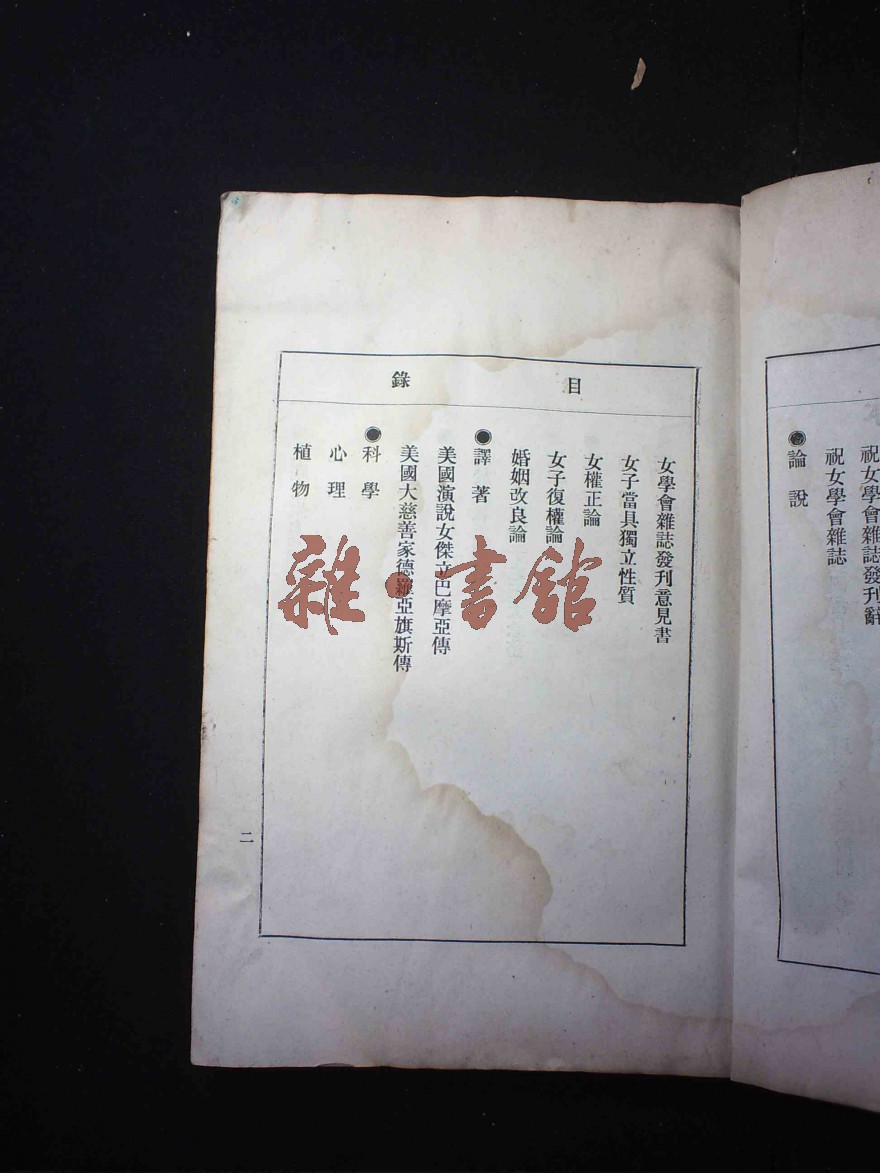 祝女學會雜誌發刊辭
祝女學會雜誌
論說
目錄
女學會雜誌發刊意見書
女子當具獨立性質
女權正論
女子復權論
婚姻改良論
譯著
美國演說女傑立巴摩亞傳
美國大慈善家德羅亞旗斯傳
科學
心理
植物
二
雜·書舘